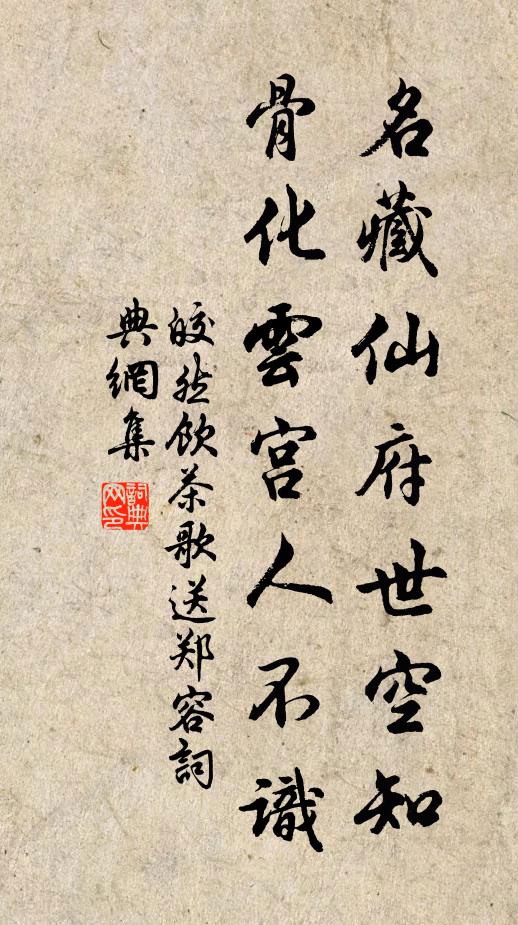 名藏仙府世空知
骨化雲宫人不識
皎然飲茶歌送郑容詞
典網集
詞典网印